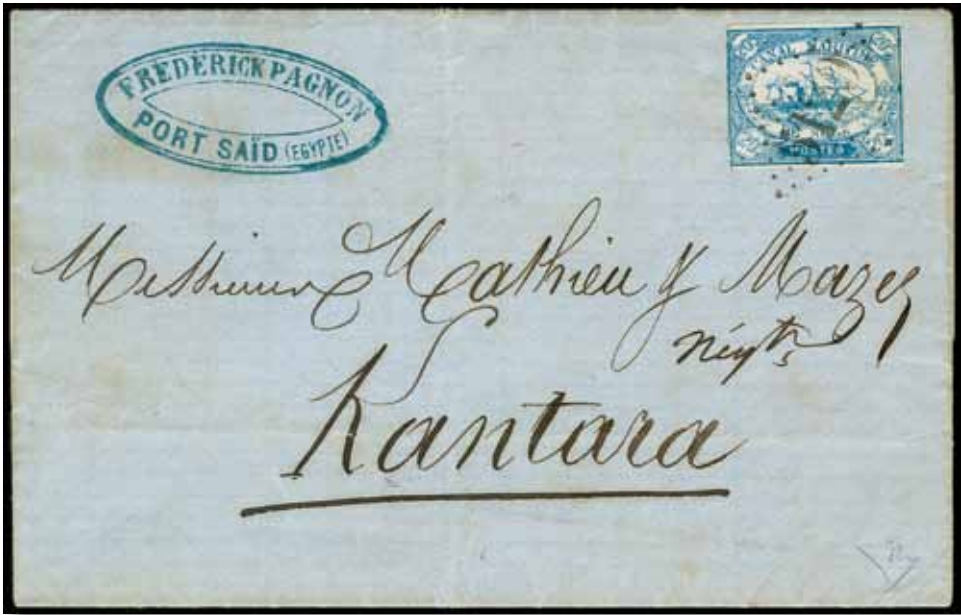 FREDERICK PAGNON
PORT SAÏD (EGYPTE)
20 CANAL MARITIME 20
POSTES
Messieurs Mathieu & Mazet
Négts
Kantara